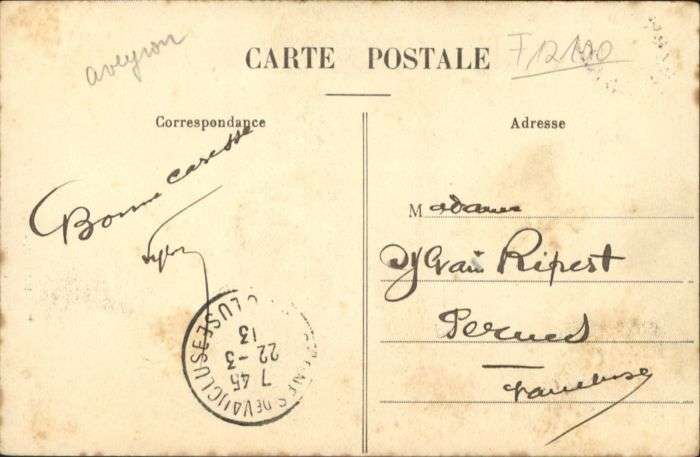 aveyron
CARTE POSTALE
F12100
Correspondance
Adresse
Bonne caresse
Madame
Sylvain Ripert
Pernes
Vaucluse
7 45
22 - 3
13
DE VAUCLUSE